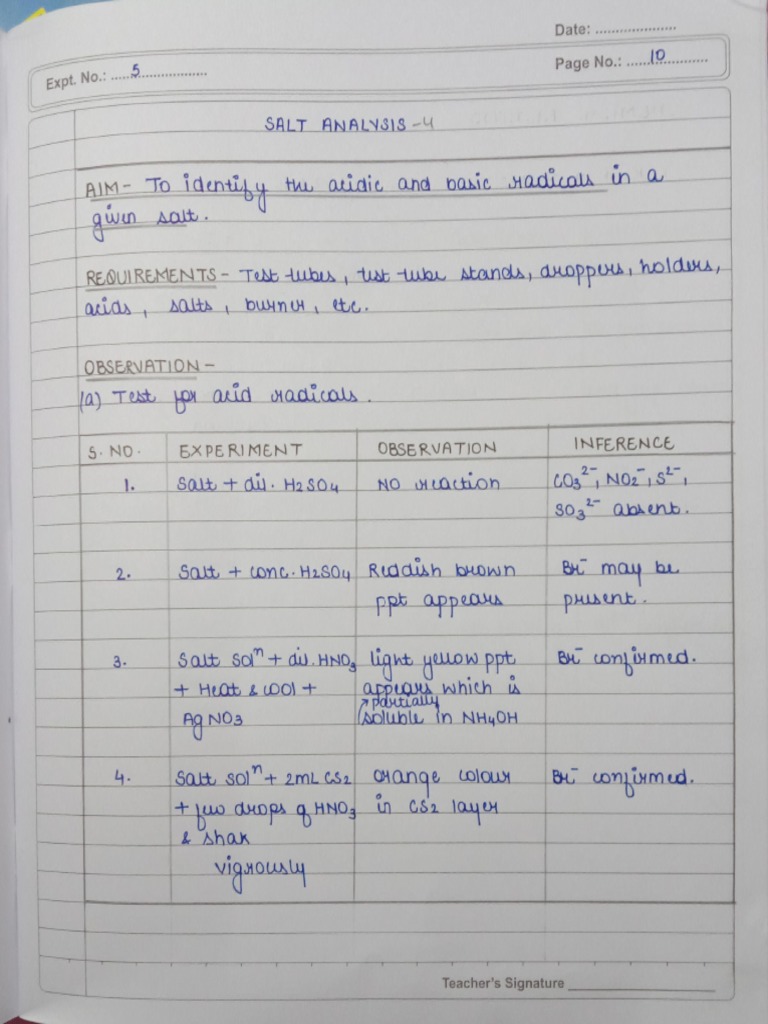 Date: ....................
Expt. No.: ..... 5 .................
Page No.: ...... 10 ............
SALT ANALYSIS -4
AIM - To identify the acidic and basic radicals in a
given salt.
REQUIREMENTS - Test tubes, test tube stands, droppers, holders,
acids, salts, burner, etc.
OBSERVATION -
(a) Test for acid radicals.
S. NO. EXPERIMENT OBSERVATION INFERENCE
1. Salt + dil. H2SO4 NO reaction CO3²⁻, NO2⁻, S²⁻,
SO3²⁻ absent.
2. Salt + conc. H2SO4 Reddish brown Br⁻ may be
ppt appears present.
3. Salt Solⁿ + dil. HNO3 light yellow ppt Br⁻ confirmed.
+ Heat & cool + appears which is
partially
AgNO3 soluble in NH4OH
4. Salt solⁿ + 2mL CS2 orange colour Br⁻ confirmed.
+ few drops of HNO3 in CS2 layer
& shak
vigrously
Teacher's Signature ____________________